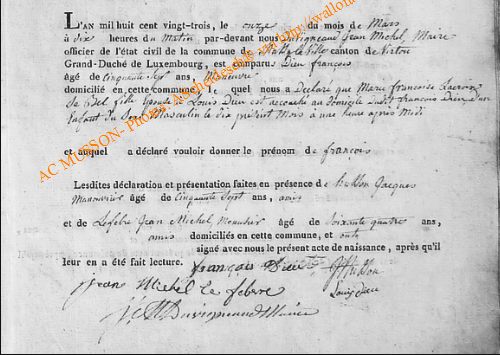 L'AN mil huit cent vingt-trois, le onze du mois de Mars
à dix heures du Matin par-devant nous Duvigneaud Jean Michel, Maire
officier de l'état civil de la commune de canton de Virton
Grand-Duché de Luxembourg, est comparu Dieu françois
âgé de Cinquante Sept ans, Manouvre
domicilié en cette commune, l quel nous a Déclaré que Marie françoise Lacroix
Sa Bel fille Epouse de Louis Dieu est accouchée au Domicile dudit françois Dieu, d'un
Enfant du Sexe Masculin le dix présent Mois à une heure après Midi
et auquel a déclaré vouloir donner le prénom de françois
Lesdites déclaration et présentation faites en présence de husson Jacques
Manouvrier âgé de Cinquante Sept ans, amis
et de Lefebre Jean Michel âgé de Soixante quatre ans,
amis domiciliés en cette commune, et ont
signé avec nous le présent acte de naissance, après qu'il
leur en a été fait lecture.
françois Dieu
jean Michel le febvre
Louis dieu
AC MUSSON- Photo: